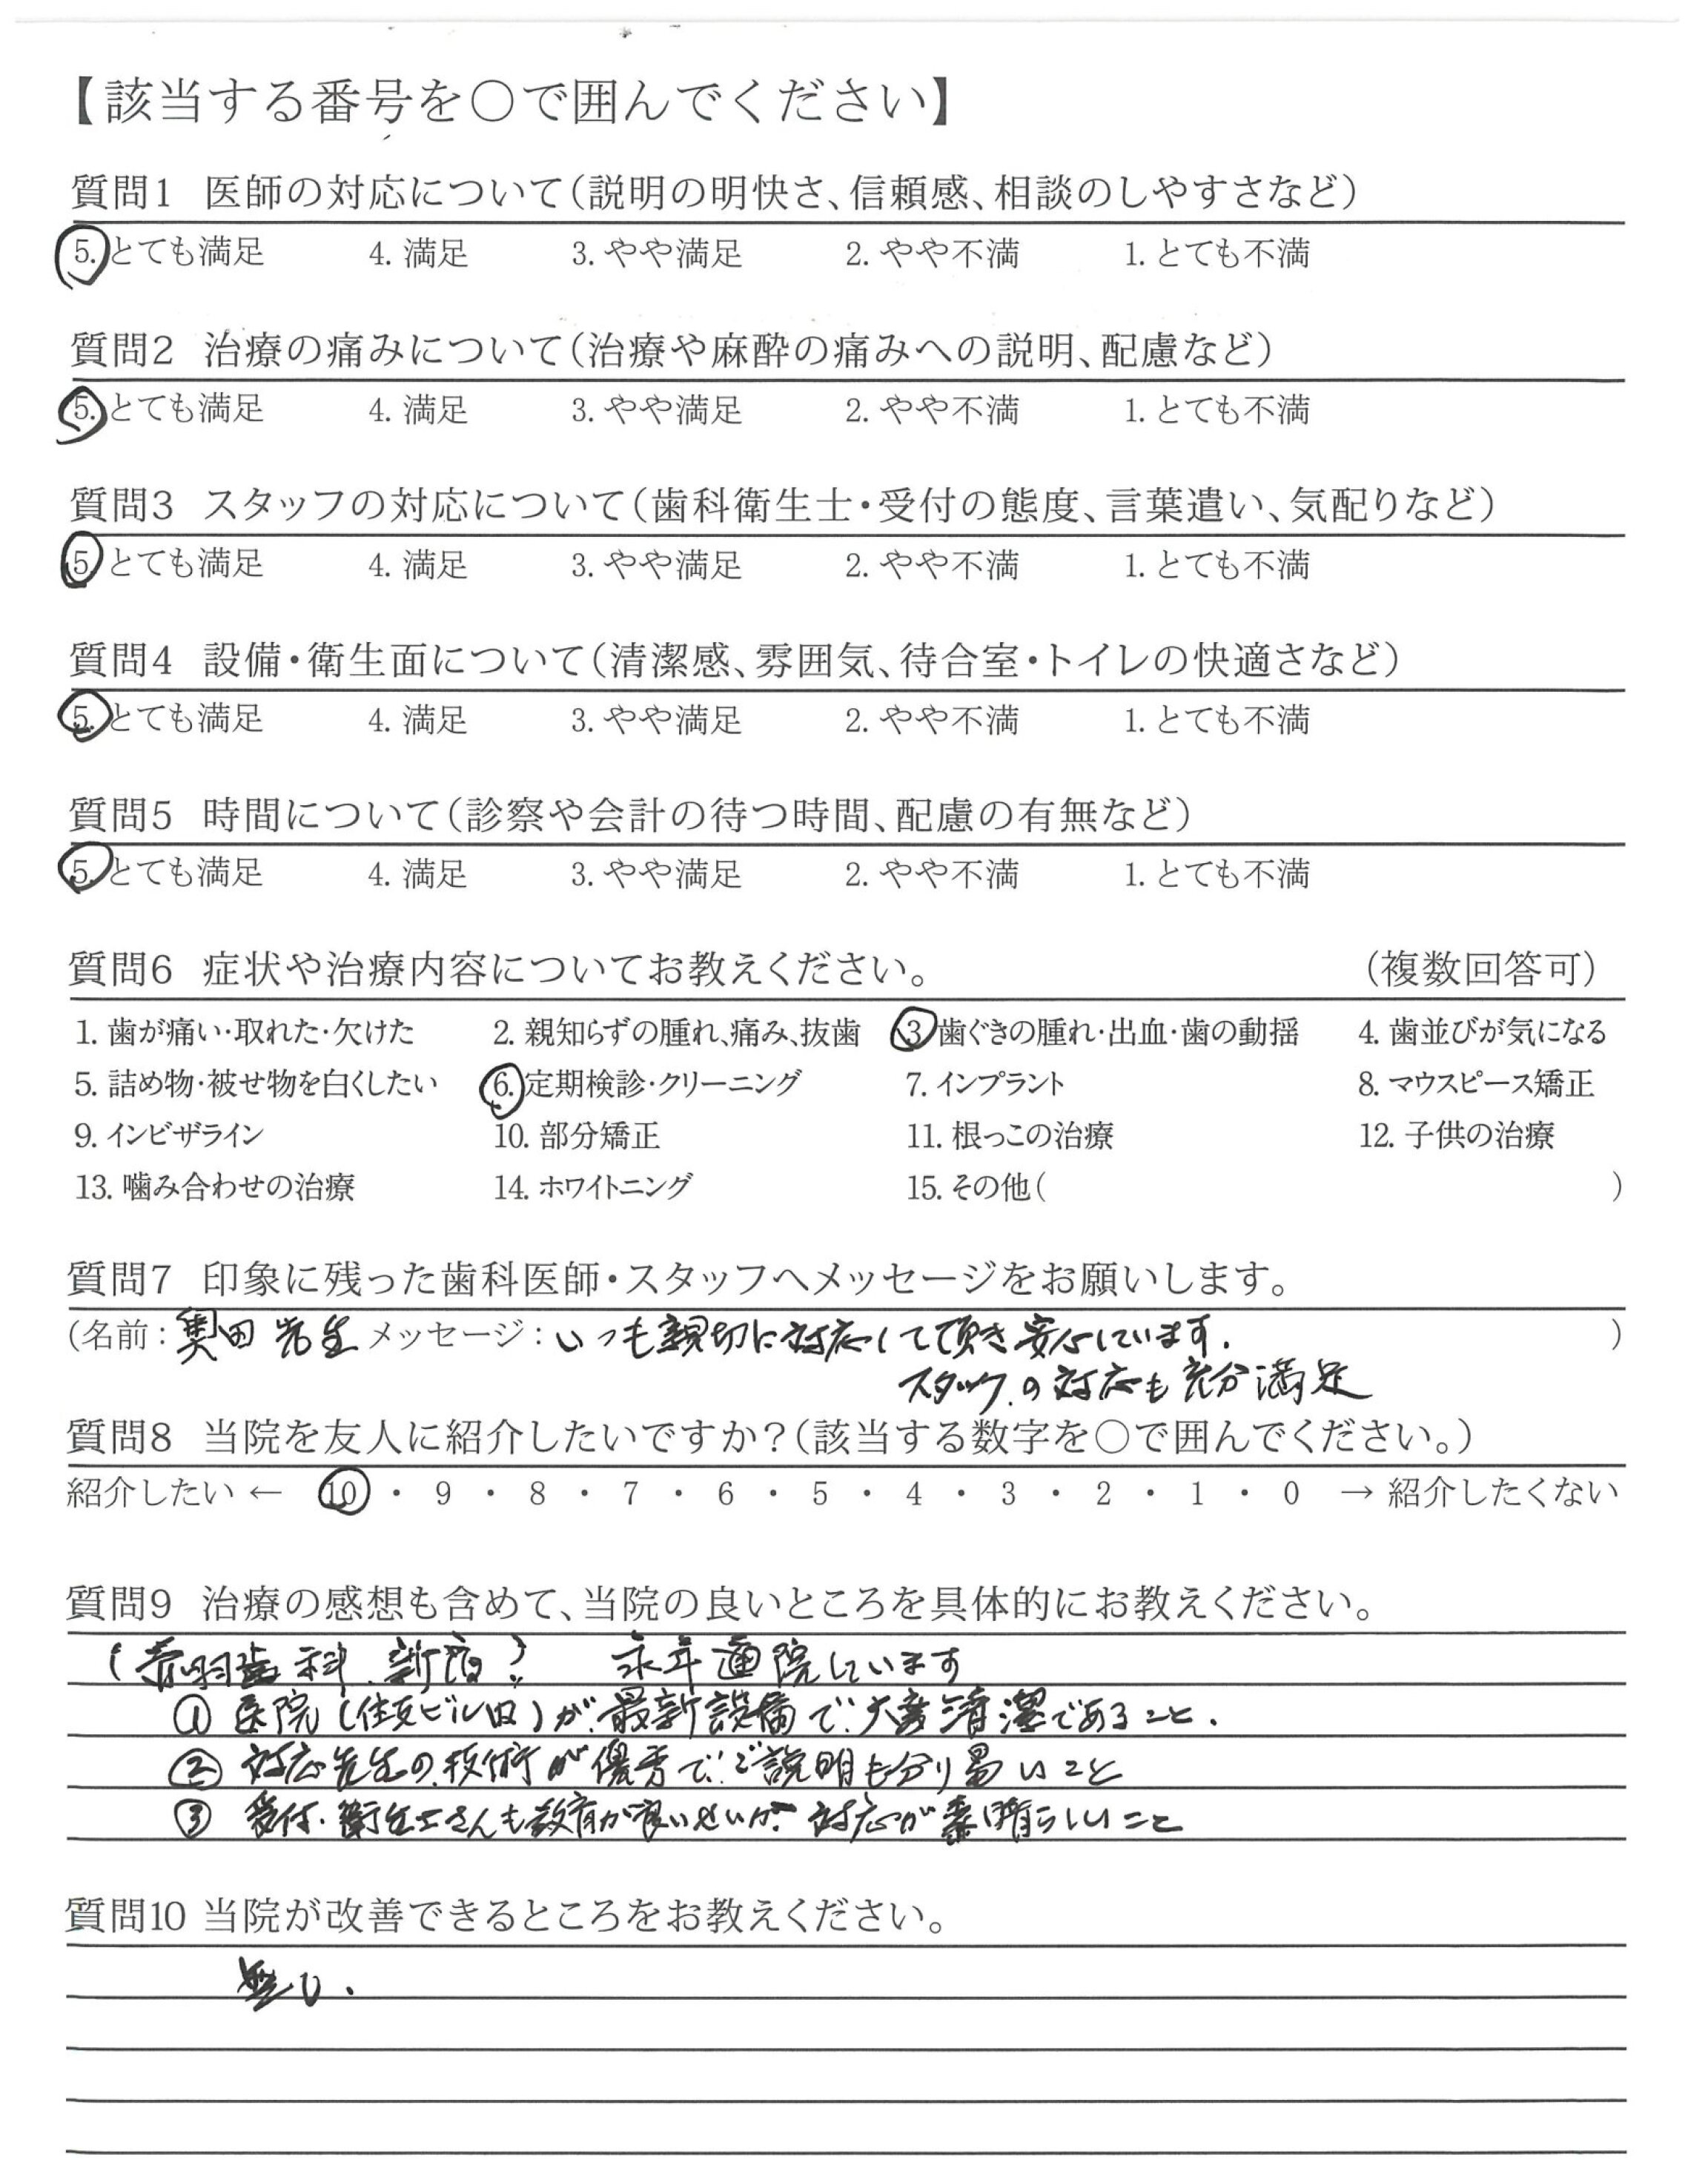 【該当する番号を○で囲んでください】
質問1 医師の対応について（説明の明快さ、信頼感、相談のしやすさなど）
5. とても満足 4. 満足 3. やや満足 2. やや不満 1. とても不満
質問2 治療の痛みについて（治療や麻酔の痛みへの説明、配慮など）
5. とても満足 4. 満足 3. やや満足 2. やや不満 1. とても不満
質問3 スタッフの対応について（歯科衛生士・受付の態度、言葉遣い、気配りなど）
5. とても満足 4. 満足 3. やや満足 2. やや不満 1. とても不満
質問4 設備・衛生面について（清潔感、雰囲気、待合室・トイレの快適さなど）
5. とても満足 4. 満足 3. やや満足 2. やや不満 1. とても不満
質問5 時間について（診察や会計の待つ時間、配慮の有無など）
5. とても満足 4. 満足 3. やや満足 2. やや不満 1. とても不満
質問6 症状や治療内容についてお教えください。 （複数回答可）
1. 歯が痛い・取れた・欠けた 2. 親知らずの腫れ、痛み、抜歯 3. 歯ぐきの腫れ・出血・歯の動揺 4. 歯並びが気になる
5. 詰め物・被せ物を白くしたい 6. 定期検診・クリーニング 7. インプラント 8. マウスピース矯正
9. インビザライン 10. 部分矯正 11. 根っこの治療 12. 子供の治療
13. 噛み合わせの治療 14. ホワイトニング 15. その他（ ）
質問7 印象に残った歯科医師・スタッフへメッセージをお願いします。
（名前：奥田 先生 メッセージ：いつも親切に対応して頂き安心しています. ）
スタッフの対応も充分満足
質問8 当院を友人に紹介したいですか？（該当する数字を○で囲んでください。）
紹介したい ← 10 ・ 9 ・ 8 ・ 7 ・ 6 ・ 5 ・ 4 ・ 3 ・ 2 ・ 1 ・ 0 → 紹介したくない
質問9 治療の感想も含めて、当院の良いところを具体的にお教えください。
（赤羽歯科 新宿） 永年通院しています
① 医院（住友ビル内）が最新設備で大変清潔であること.
② 対応先生の技術が優秀でご説明も分り易いこと
③ 受付・衛生士さんも教育が良いせいか 対応が素晴らしいこと
質問10 当院が改善できるところをお教えください。
無し.